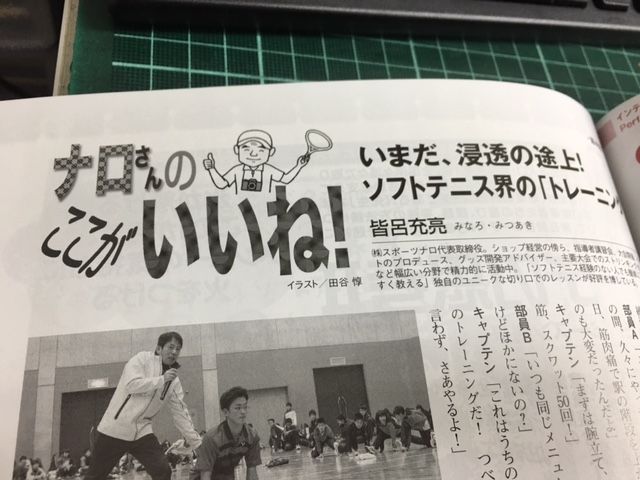 ナロさんの
ここがいいね!
イラスト/田谷 惇
いまだ、浸透の途上!
ソフトテニス界の「トレーニン
皆呂充亮 みなろ・みつあき
㈱スポーツナロ代表取締役。ショップ経営の傍ら、指導者講習会、大会
トのプロデュース、グッズ開発アドバイザー、主要大会でのストリン
など幅広い分野で精力的に活動中。「ソフトテニス経験のない人でも
すく教える」独自のユニークな切り口でのレッスンが好評を博している
部員A
の間、久々に
日、筋肉痛で駅の階段
のも大変だったんだ!と
キャプテン「まずは腕立て、
筋、スクワット50回!」
部員B「いつも同じメニュー
けどほかにないの?」
キャプテン「これはうちの
のトレーニングだ! つべ
言わず、さあやるよ!」
インテ
Perf